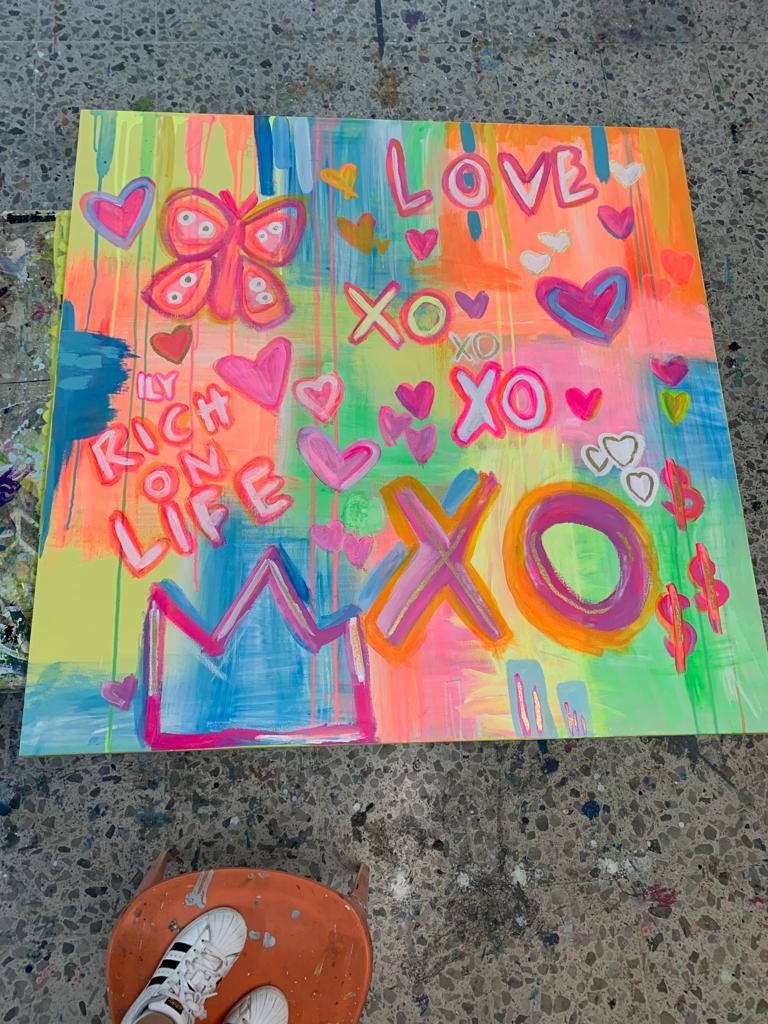 LOVE
XO
XO
XO
ILY
RICH
ON
LIFE
XO
$
$
$